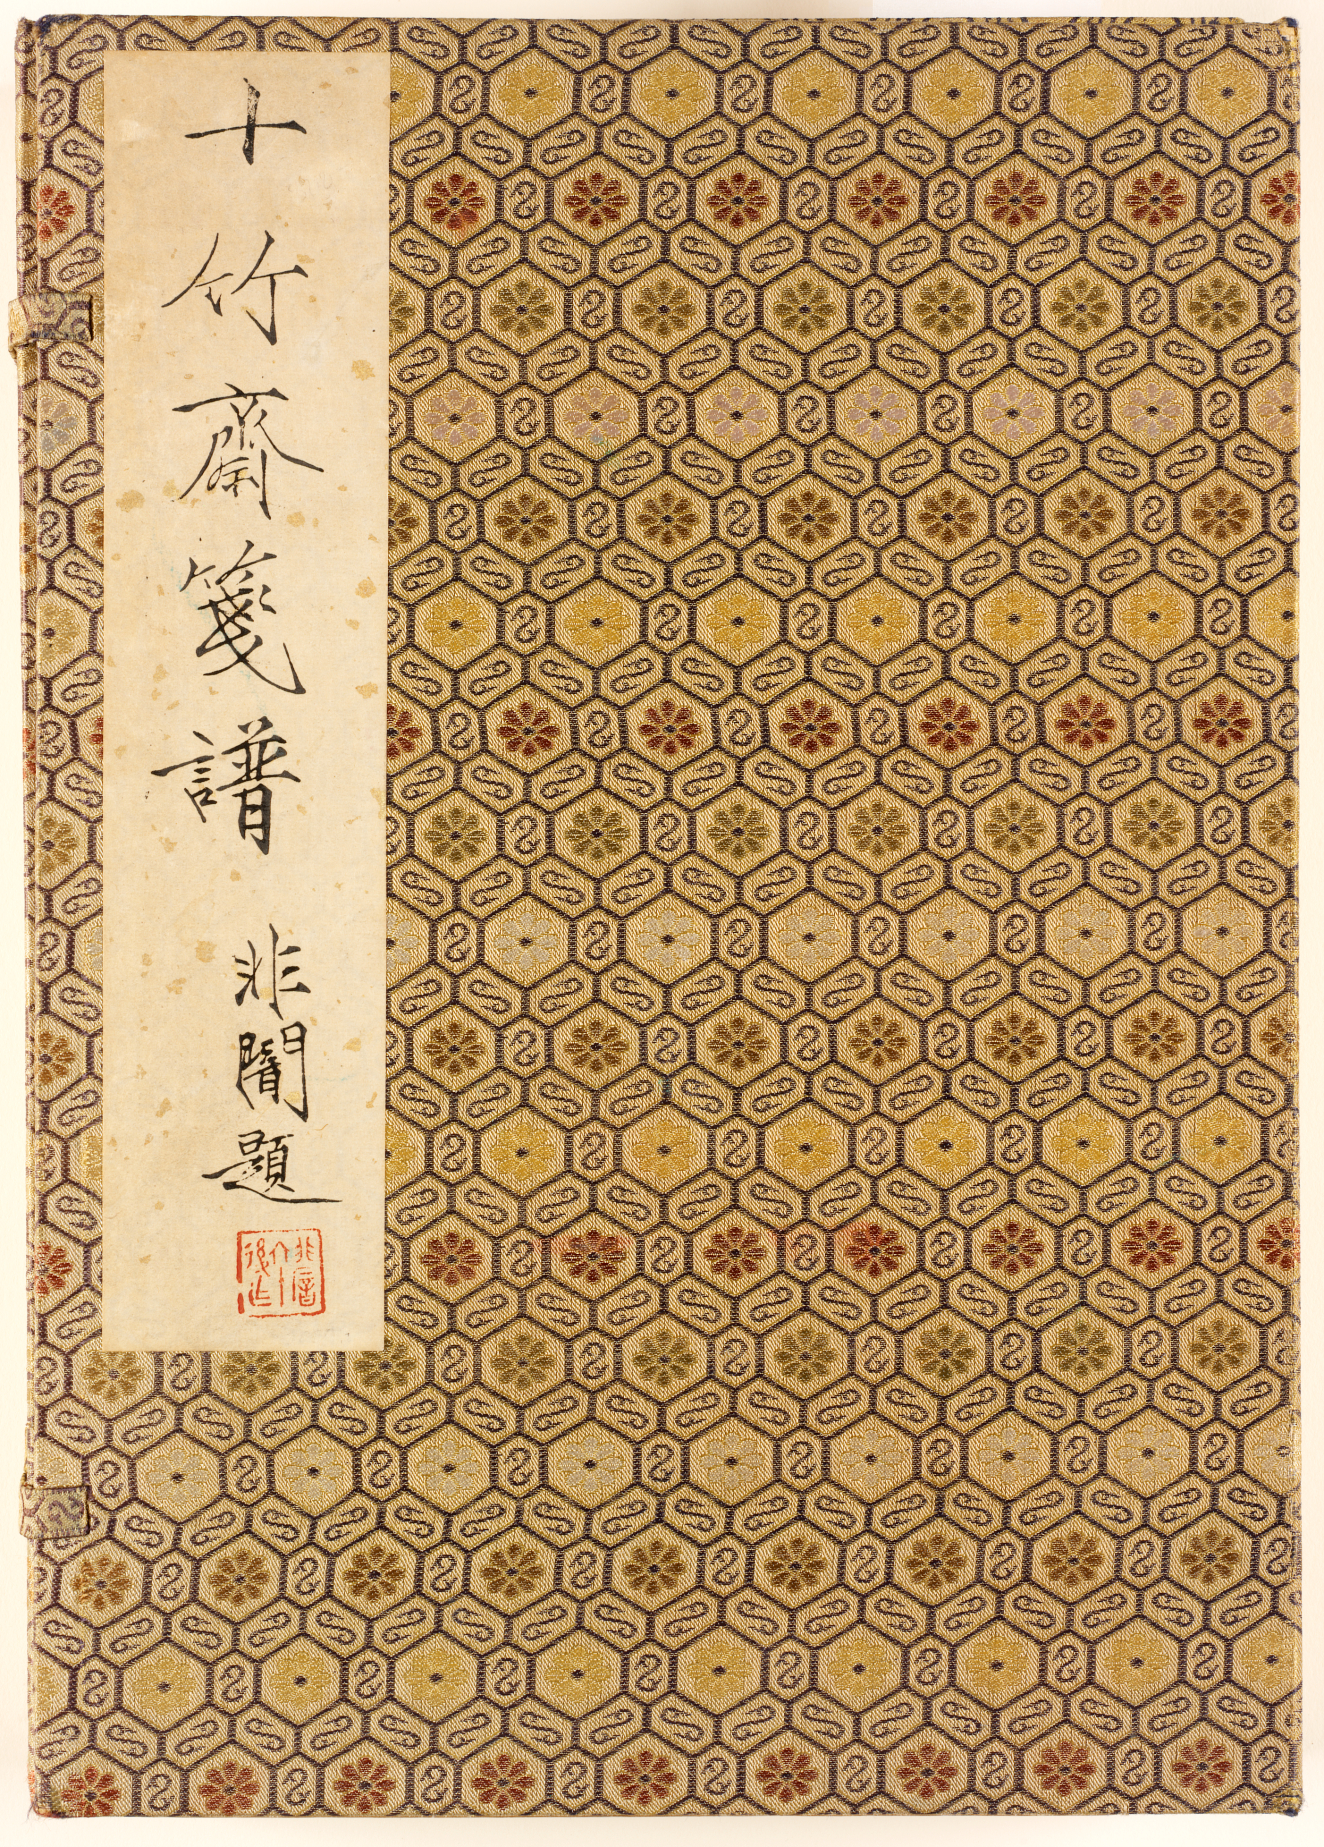 十竹齋箋譜 非闇題